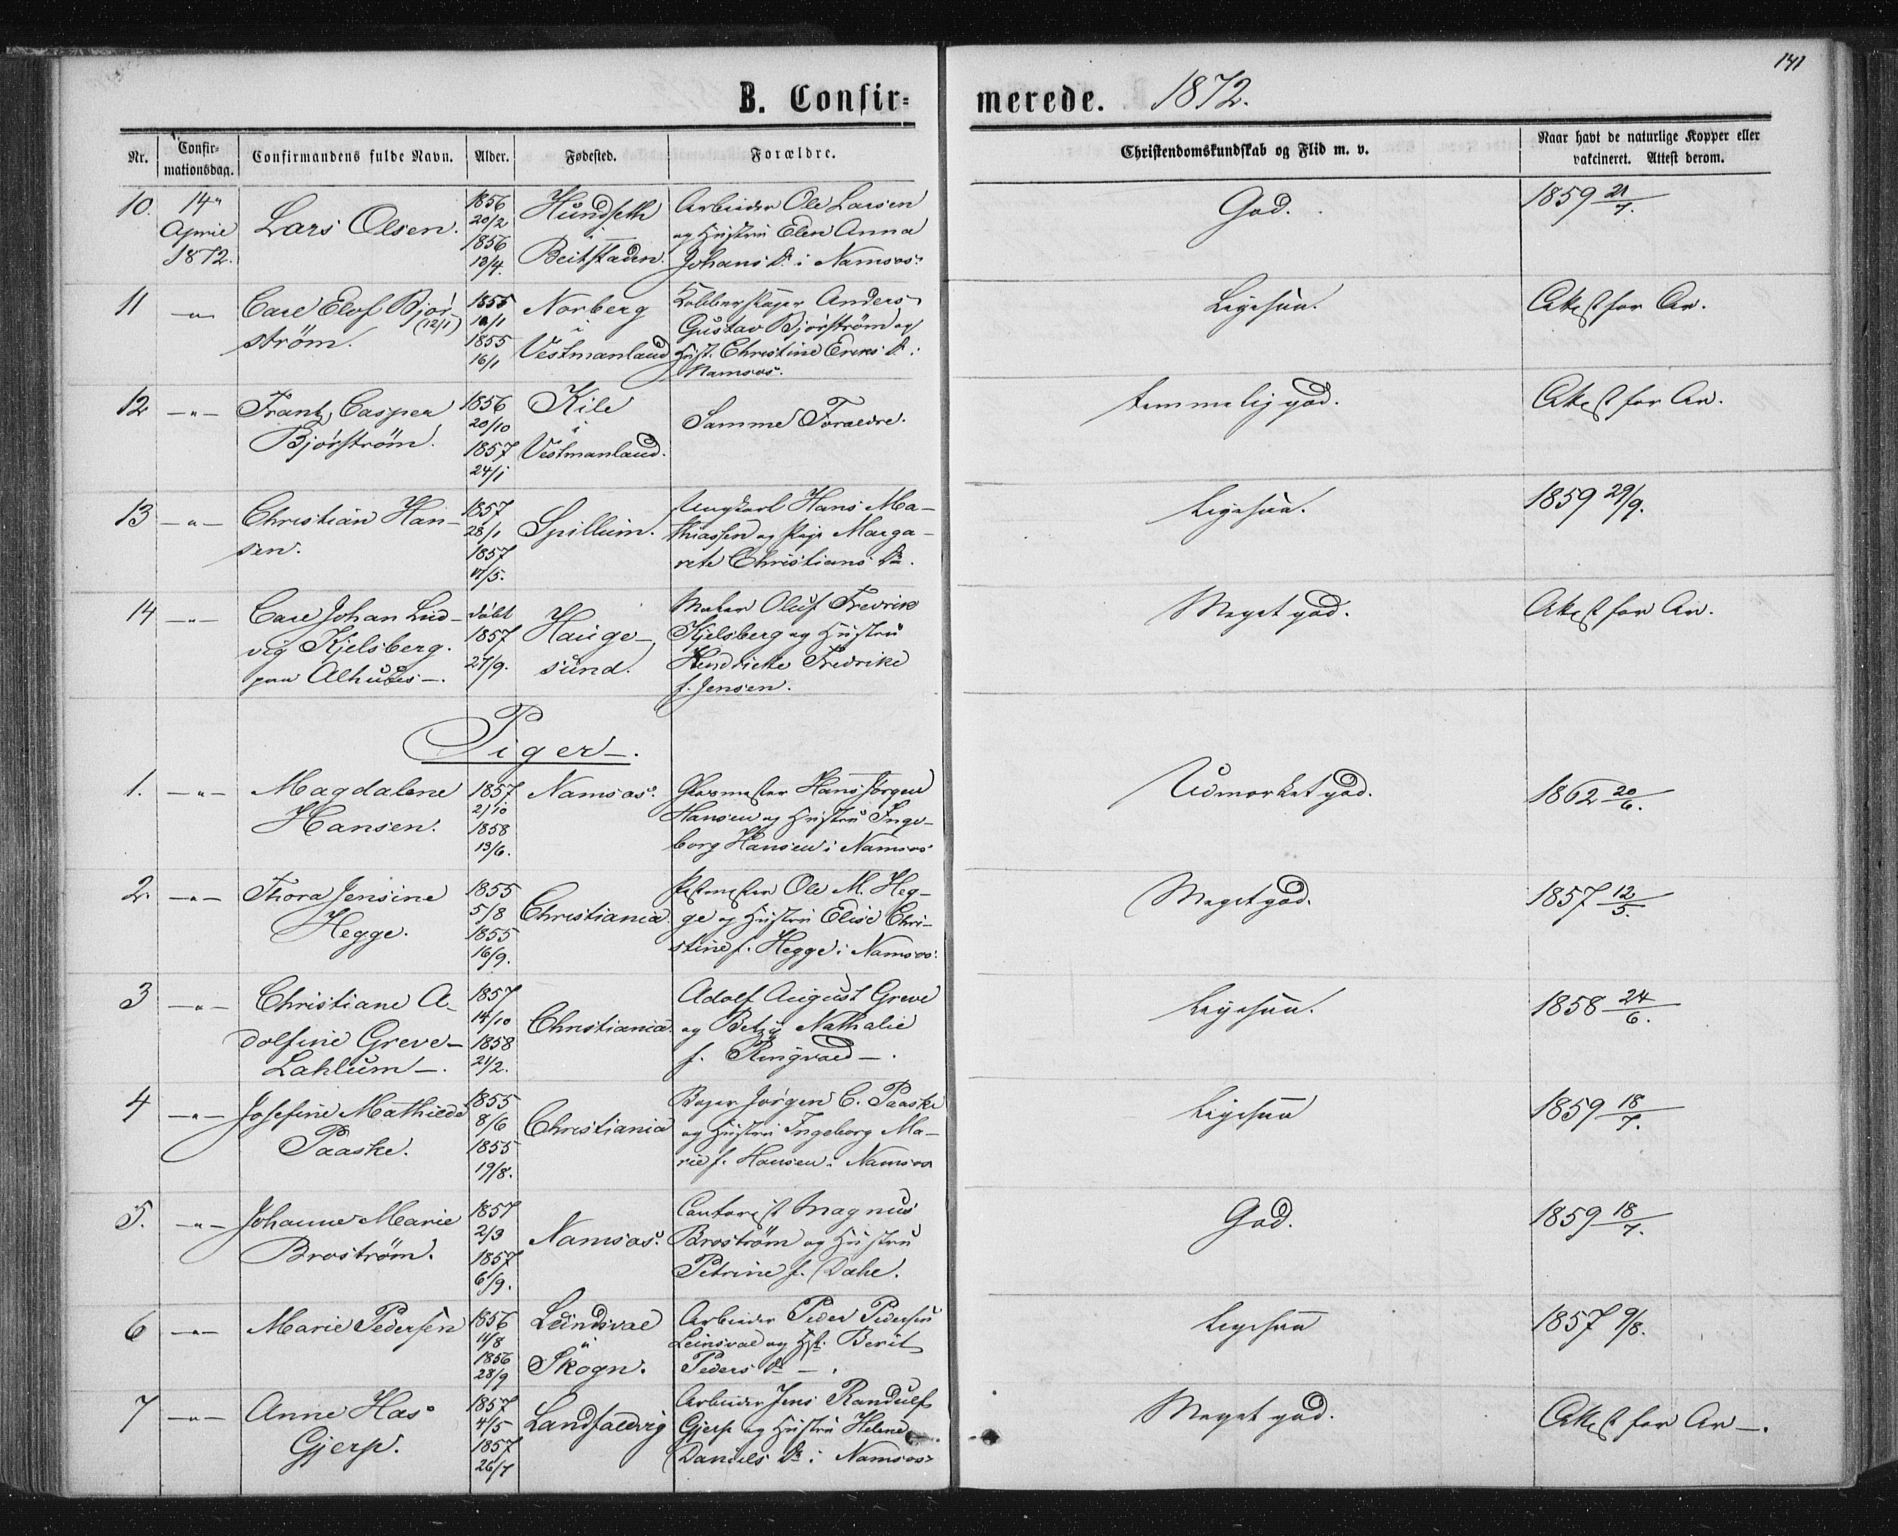 141
B. Confirmerede. 1872.
Nr. | Confirmationsdag. | Confirmandens fulde Navn. | Alder. | Fødested. | Forældre. | Christendomskundskab og Flid m. v. | Naar havt de naturlige Kopper eller vakcineret. Attest derom.
10. | 14" April 1872. | Lars Olsen. | 1856 20/2 1856 13/4. | Hundseth i Beitstaden. | Arbeider Ole Larsen og Hustru Elen Anna Johans D. i Namsos. | God. | 1859 21/7.
11 | —"— | Carl Elof Bjørström. (12/1) | 1855 12/1 1855 16/1 | Norberg i Vestmanland | Kobberslager Anders Gustav Bjørström og Hust. Christine Eriks D. i Namsos. | Ligesaa. | Attest for Av.
12 | —"— | Frantz Casper Bjørström. | 1856 20/10 1857 24/1 | Kile i Vestmanland. | Samme Foraeldre. | temmelig god. | Attest for Av.
13 | —"— | Christian Hansen. | 1857 28/1 1857 17/5. | Spillum. | Ungkarl Hans Mathiassen og Pige Margarete Christians D. | Ligesaa. | 1859 29/9.
14 | —"— | Carl Johan Ludvig Kjelsberg. paa Alhuus —. | døbt 1857 27/9. | Haugesund. | Maler Oluf Fredrik Kjelsberg og Hustru Hendrikke Fredrike f. Jensen. | Meget god. | Attest for Av.
Piger —.
1. | —"— | Magdalene Hansen. | 1857 21/10 1858 13/6. | Namsos. | Glasmester Hans Jørgen Hansen og Hustru Ingeborg Hansen i Namsos | Udmærket god. | 1862 20/6.
2. | —"— | Thora Jensine Hegge. | 1855 5/8 1855 16/9. | Christiania | Postmester Ole M. Hegge og Hustru Elise Christine f. Hegge i Namsos. | Meget god. | 1857 12/5.
3 | —"— | Christiane Adolfine Greve — Lahlum —. | 1857 14/10 1858 21/2. | Christiania. | Adolf August Greve og Betzy Nathalie f. Ringvold —. | Ligesaa. | 1858 24/6.
4 | —"— | Josefine Mathilde Paaske. | 1855 8/6 1855 19/8. | Christiania | Bager Jørgen C. Paaske og Hustru Ingeborg Marie f. Hansen i Namsos | Ligesaa | 1859 18/7.
5. | —"— | Johanne Marie Broström. | 1857 2/3 1857 6/9. | Namsos. | Contorist Magnus Broström og Hustru Petrine f. Dahl. | God. | 1859 18/7.
6 | —"— | Marie Pedersen | 1856 11/8 1856 28/9 | Leindsval i Skogn. | Arbeider Peder Pedersen Leinsval og Hst. Berit Peders D —. | Ligesaa | 1857 9/8.
7 | —"— | Anne Has Gjerp. | 1857 4/5 1857 26/7 | Landfaldvig | Arbeider Jens Randulf Gjerp og Hustru Helene Daniels D. i Namsos. | Meget god. | Attest for Av —.